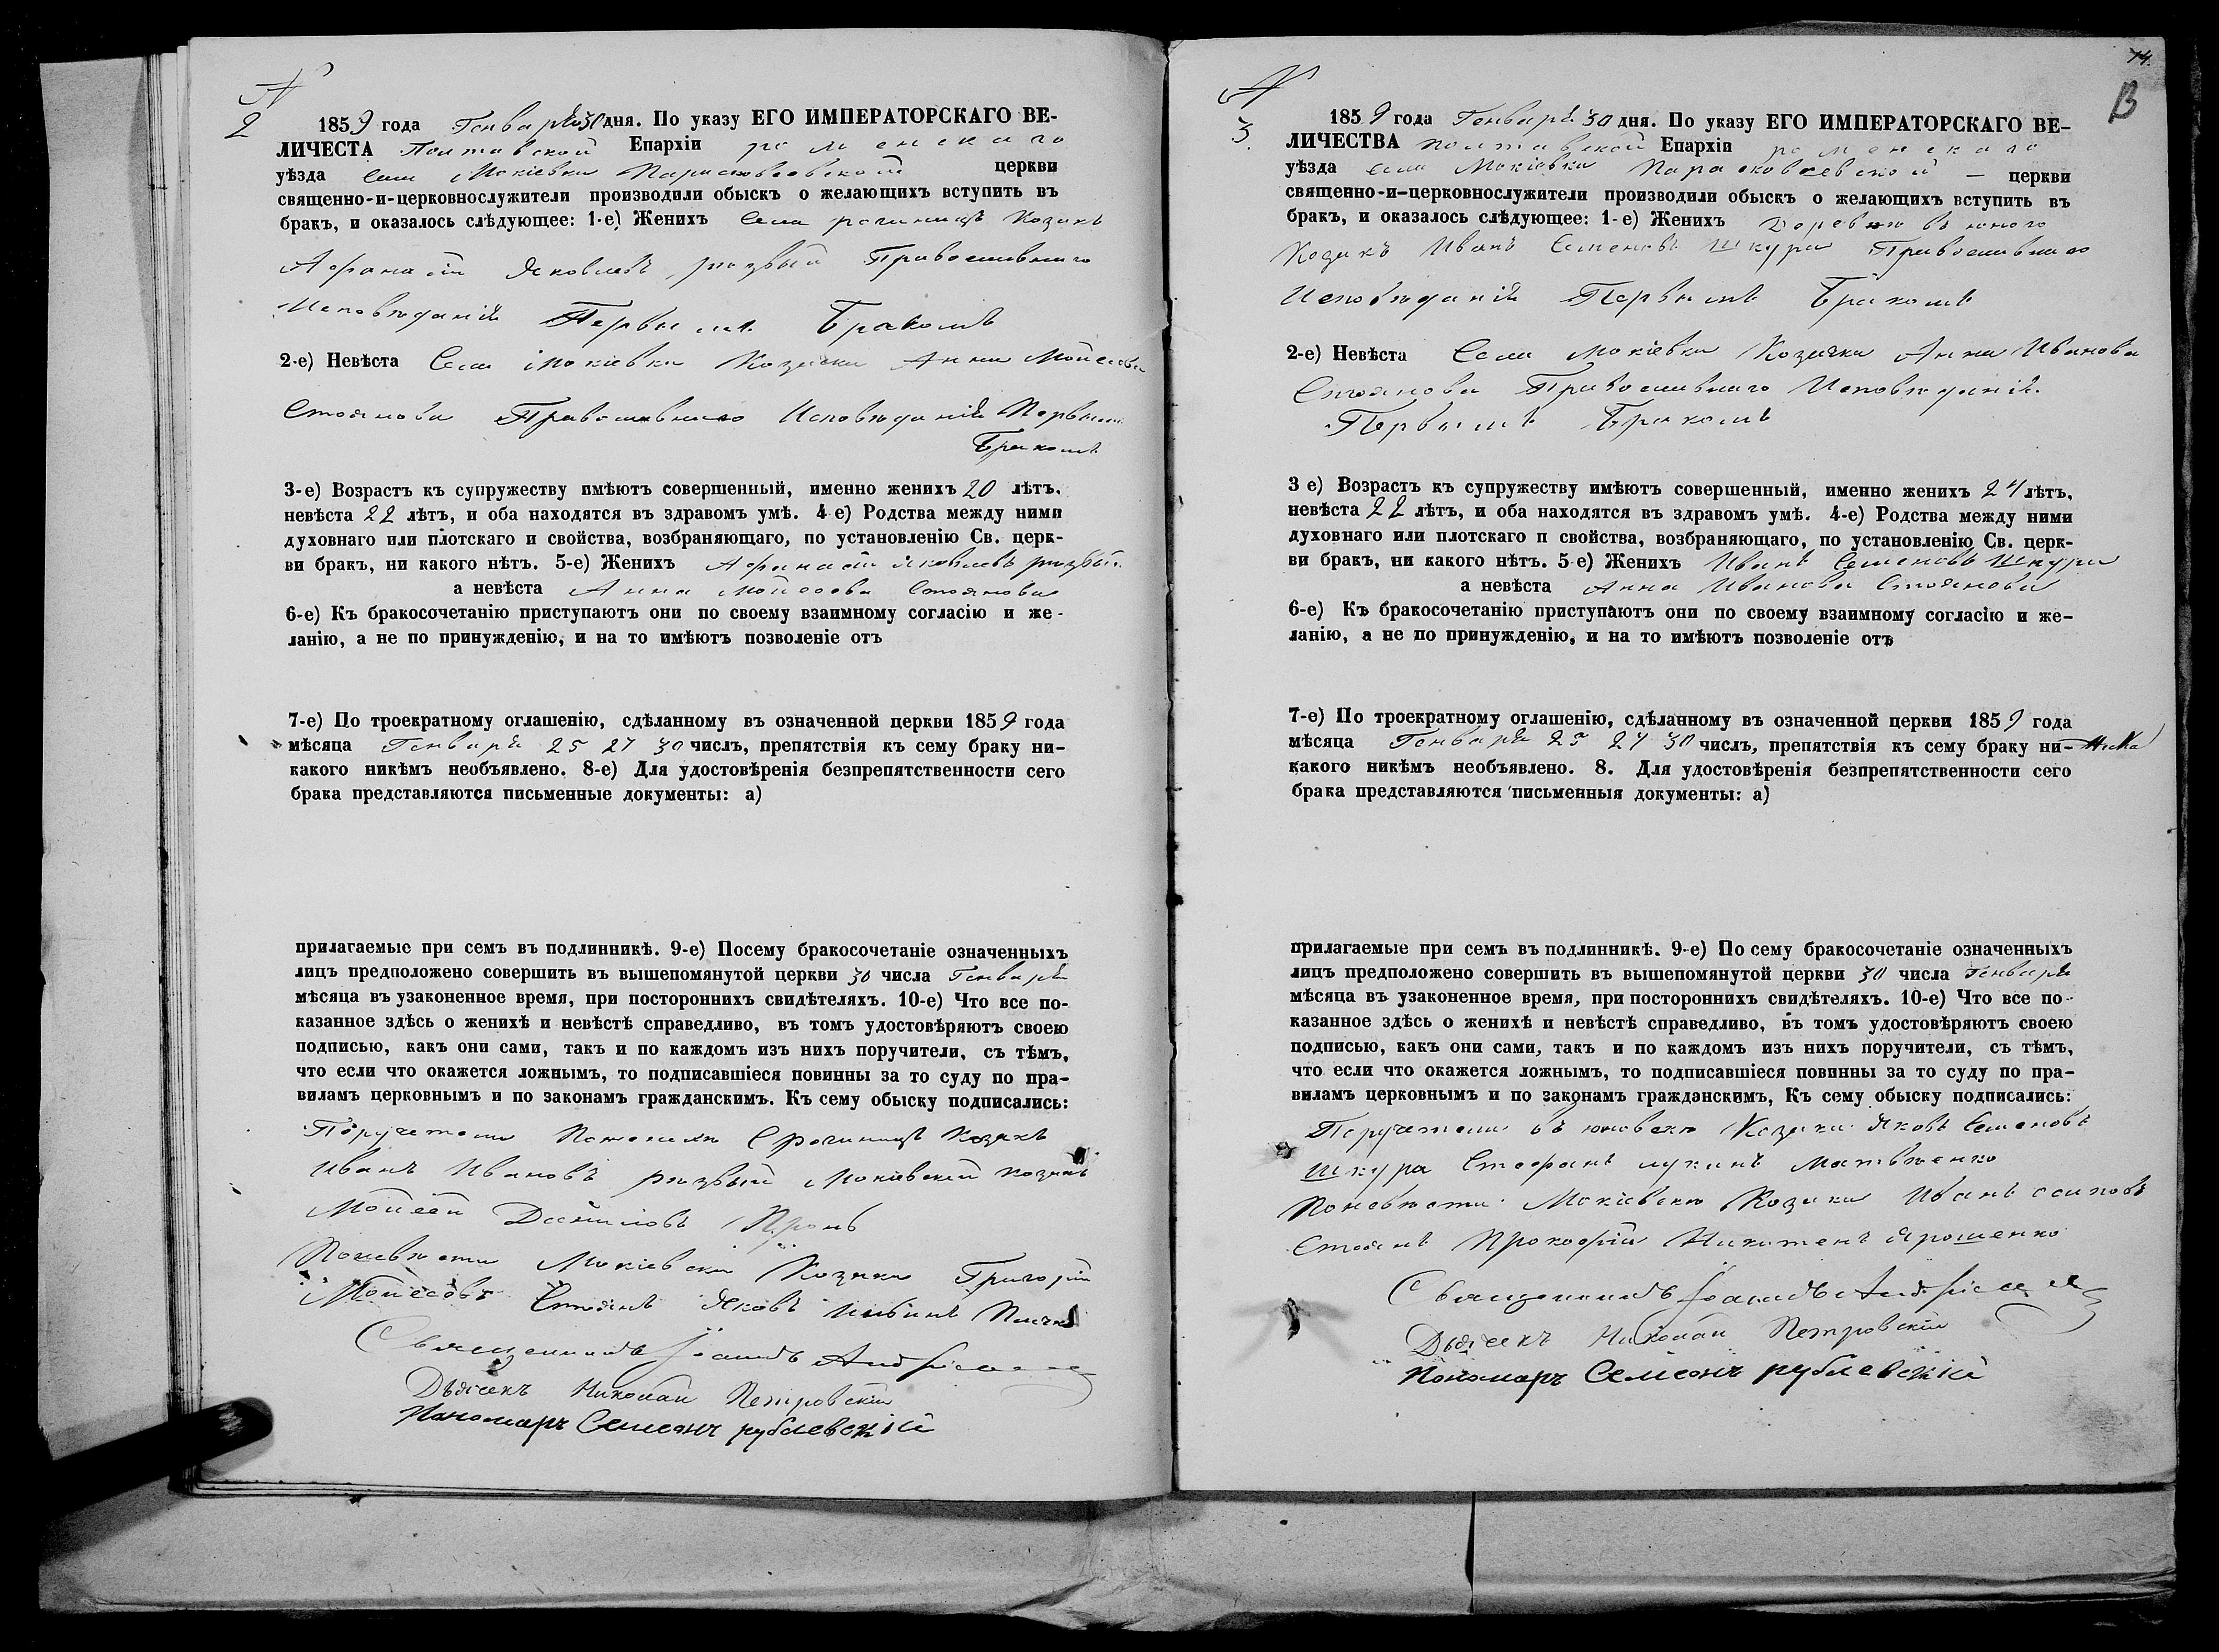 N
2
1859 года Генваря 30 дня. По указу ЕГО ИМПЕРАТОРСКАГО ВЕ-
ЛИЧЕСТА Полтавской Епархіи роменскаго
уѣзда Села Мокіевки Парасковіевской церкви
священно-и-церковнослужители производили обыскъ о желающихъ вступить въ
бракъ, и оказалось слѣдующее: 1-е) Женихъ Села Козакъ
Афанасій Яковлевъ Православнаго
Исповѣданія Первымъ Бракомъ
2-е) Невѣста Села Мокіевки Козачка Анна Мойсеова
Стоянова Православнаго Исповѣданія Первымъ
Бракомъ
3-е) Возрастъ къ супружеству имѣютъ совершенный, именно женихъ 20 лѣтъ.
невѣста 22 лѣтъ, и оба находятся въ здравомъ умѣ. 4 е) Родства между ними
духовнаго или плотскаго и свойства, возбраняющаго, по установленію Св. церк-
ви бракъ, ни какого нѣтъ. 5-е) Женихъ Афанасій Яковлевъ
а невѣста Анна Мойсеова Стоянова
6-е) Къ бракосочетанію приступаютъ они по своему взаимному согласію и же-
ланію, а не по принужденію, и на то имѣютъ позволеніе отъ
7-е) По троекратному оглашенію, сдѣланному въ означенной церкви 1859 года
мѣсяца Генваря 25 27 30 числъ, препятствія къ сему браку ни-
какого никѣмъ необъявлено. 8-е) Для удостовѣренія безпрепятственности сего
брака представляются письменные документы: а)
прилагаемые при семъ въ подлинникѣ. 9-е) Посему бракосочетаніе означенныхъ
лицъ предположено совершить въ вышепомянутой церкви 30 числа Генваря
мѣсяца въ узаконенное время, при постороннихъ свидѣтеляхъ. 10-е) Что все по-
казанное здѣсь о женихѣ и невѣстѣ справедливо, въ томъ удостовѣряютъ своею
подписью, какъ они сами, такъ и по каждомъ изъ нихъ поручители, съ тѣмъ,
что если что окажется ложнымъ, то подписавшіеся повинны за то суду по пра-
виламъ церковнымъ и по законамъ гражданскимъ. Къ сему обыску подписались:
Козакъ
Иванъ Ивановъ Мокіевскій козакъ
Мойсей Даниловъ
Поневѣсти Мокіевскіи Козаки Григорій
Мойсеовъ Стоянъ Яковъ
Священникъ Іоаннъ
Дьячекъ Николай Петровскій
Пономарь Семеонъ рублевскій
14.
13
N
3.
1859 года Генваря 30 дня. По указу ЕГО ИМПЕРАТОРСКАГО ВЕ-
ЛИЧЕСТВА полтавской Епархіи роменскаго
уѣзда села Мокіевки Парасковіевской — церкви
священно-и-церковнослужители производили обыскъ о желающихъ вступить въ
бракъ, и оказалось слѣдующее: 1-е) Женихъ Деревни
Козакъ Иванъ Семеновъ Шкура Православнаго
Исповѣданія Первымъ Бракомъ
2-е) Невѣста Села Мокіевки Козачка Анна Иванова
Стоянова Православнаго Исповѣданія
Первымъ Бракомъ
3 е) Возрастъ къ супружеству имѣютъ совершенный, именно женихъ 24 лѣтъ,
невѣста 22 лѣтъ, и оба находятся въ здравомъ умѣ. 4-е) Родства между ними
духовнаго или плотскаго и свойства, возбраняющаго, по установленію Св. церк-
ви бракъ, ни какого нѣтъ. 5-е) Женихъ Иванъ Семеновъ Шкура
а невѣста Анна Иванова Стоянова
6-е) Къ бракосочетанію приступаютъ они по своему взаимному согласію и же-
ланію, а не по принужденію, и на то имѣютъ позволеніе отъ
7-е) По троекратному оглашенію, сдѣланному въ означенной церкви 1859 года
мѣсяца Генваря 25 27 30 числъ, препятствія къ сему браку ни-
какого никѣмъ необъявлено. 8. Для удостовѣренія безпрепятственности сего
брака представляются письменныя документы: а)
прилагаемые при семъ въ подлинникѣ. 9-е) По сему бракосочетаніе означенныхъ
лицъ предположено совершить въ вышепомянутой церкви 30 числа Генваря
мѣсяца въ узаконенное время, при постороннихъ свидѣтеляхъ. 10-е) Что все по-
казанное здѣсь о женихѣ и невѣстѣ справедливо, въ томъ удостовѣряютъ своею
подписью, какъ они сами, такъ и по каждомъ изъ нихъ поручители, съ тѣмъ,
что если что окажется ложнымъ, то подписавшіеся повинны за то суду по пра-
виламъ церковнымъ и по законамъ гражданскимъ, Къ сему обыску подписались:
Козаки Яковъ Семеновъ
Шкура Стефанъ Матвѣенко
Поневѣсти Козаки Иванъ осиповъ
Стоянъ Прокофій Ярошенко
Священникъ Іоаннъ
Дьячекъ Николай Петровскій
Пономарь Семеонъ рублевскій